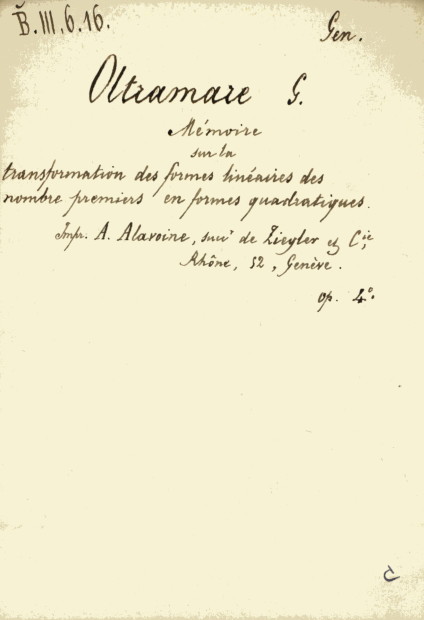 B̌.III.6.16.
Gen.
Oltramare G.
Mémoire
sur la
transformation des formes linéaires des
nombre premiers en formes quadratiques.
Impr. A. Alavoine, succr de Ziegler et Cie,
Rhône, 52, Genève.
op. 4°.